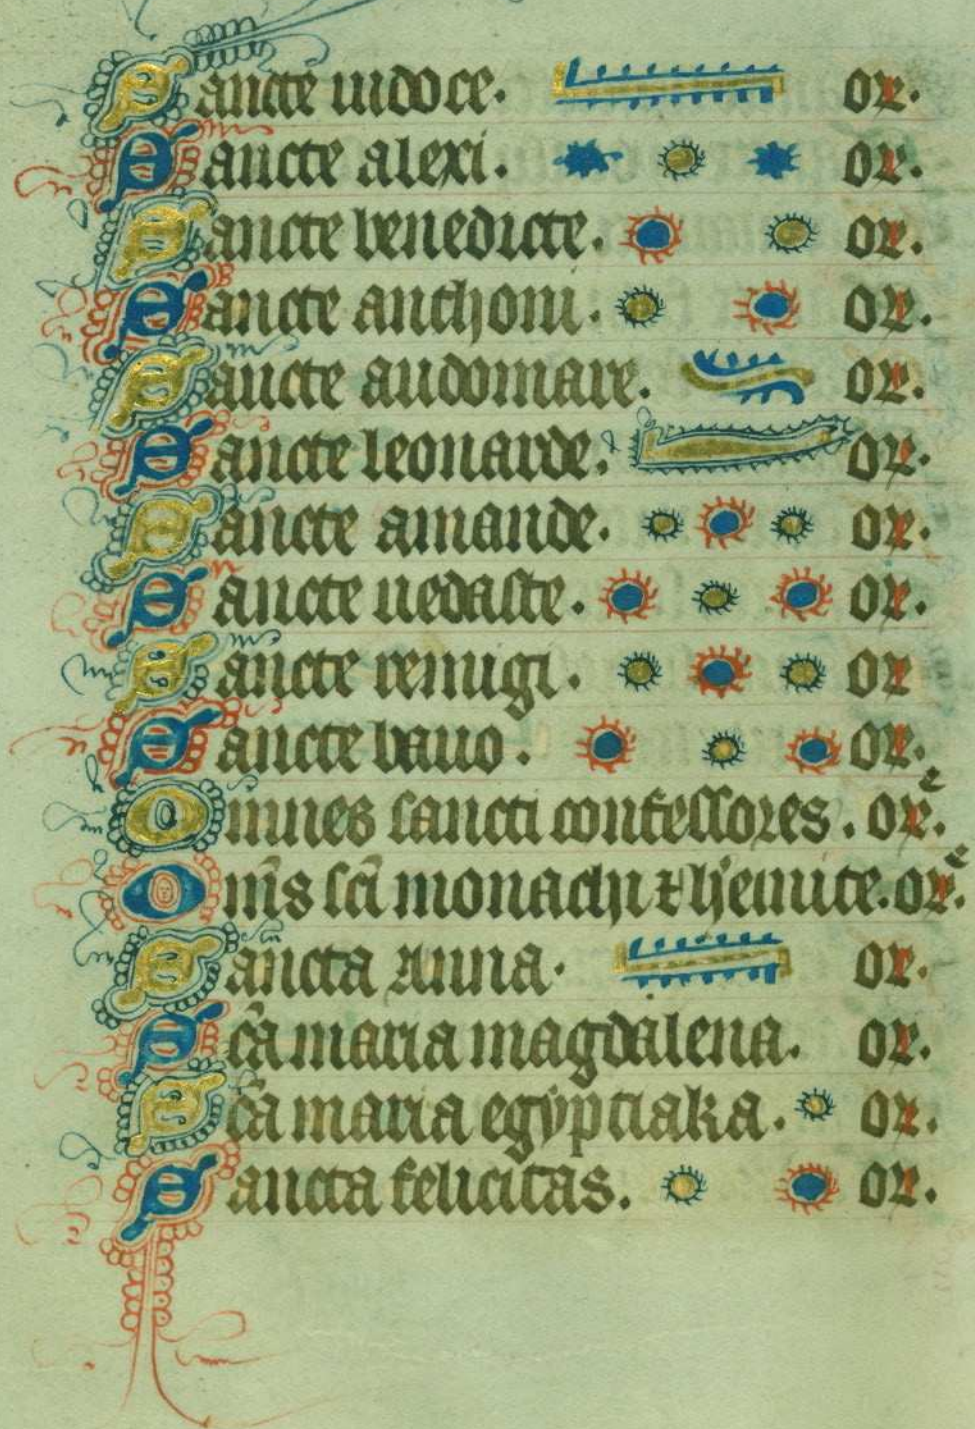 Sancte iudoce. or.
Sancte alexi. or.
Sancte benedicte. or.
Sancte anthoni. or.
Sancte audomare. or.
Sancte leonarde. or.
Sancte amande. or.
Sancte uedaste. or.
Sancte remigi. or
Sancte bauo. or.
Omnes sancti confessores. orẽ.
Om̃s sc̃i monachi ⁊ h'emite. orẽ.
Sancta anna. or.
Sc̃a maria magdalena. or.
Sc̃a maria egẏptiaka. or.
Sancta felicitas. or.